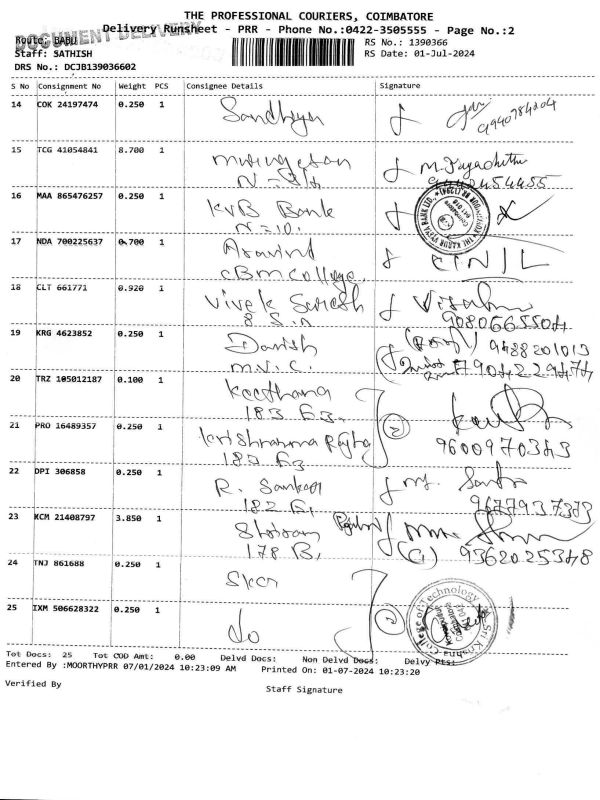 THE PROFESSIONAL COURIERS, COIMBATORE
DOCUMENT DELIVERY
Delivery Runsheet - PRR - Phone No.:0422-3505555 - Page No.:2
Route: BABU
RS No.: 1390366
Staff: SATHISH
RS Date: 01-Jul-2024
DRS No.: DCJB139036602
S No Consignment No Weight PCS Consignee Details Signature
14 COK 24197474 0.250 1 Sandhya
15 TCG 41054841 8.700 1
9442454455
16 MAA 865476257 0.250 1 KVB Bank
17 NDA 700225637 0.700 1 Aravind
CBM College.
18 CLT 661771 0.920 1 Vivek Suresh
9080665504
19 KRG 4623852 0.250 1 Danish 9488201013
M.V.C.
20 TRZ 105012187 0.100 1 Keerthana
183 F3.
21 PRO 16489357 0.250 1 2
9600970343
22 DPI 306858 0.250 1 R. Sankar
9677937373
23 KCM 21408797 3.850 1
178 B. 9362025348
24 TNJ 861688 0.250 1
25 IXM 506628322 0.250 1 do 2
Tot Docs: 25 Tot COD Amt: 0.00 Delvd Docs: Non Delvd Docs: Delvy Pts:
Entered By :MOORTHYPRR 07/01/2024 10:23:09 AM Printed On: 01-07-2024 10:23:20
Verified By
Staff Signature